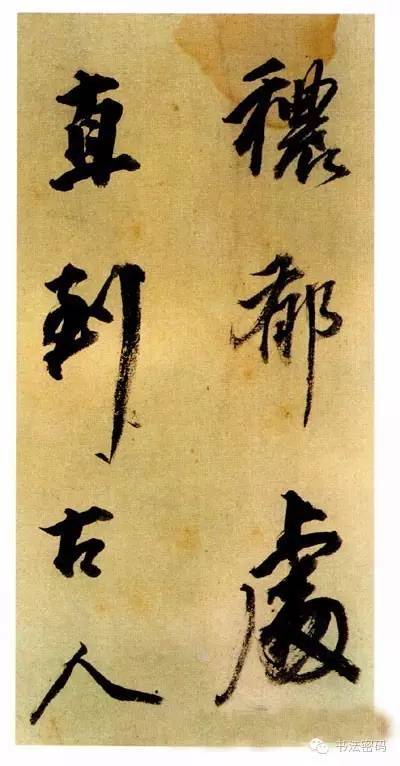 穠郁處
直到古人
书法密码